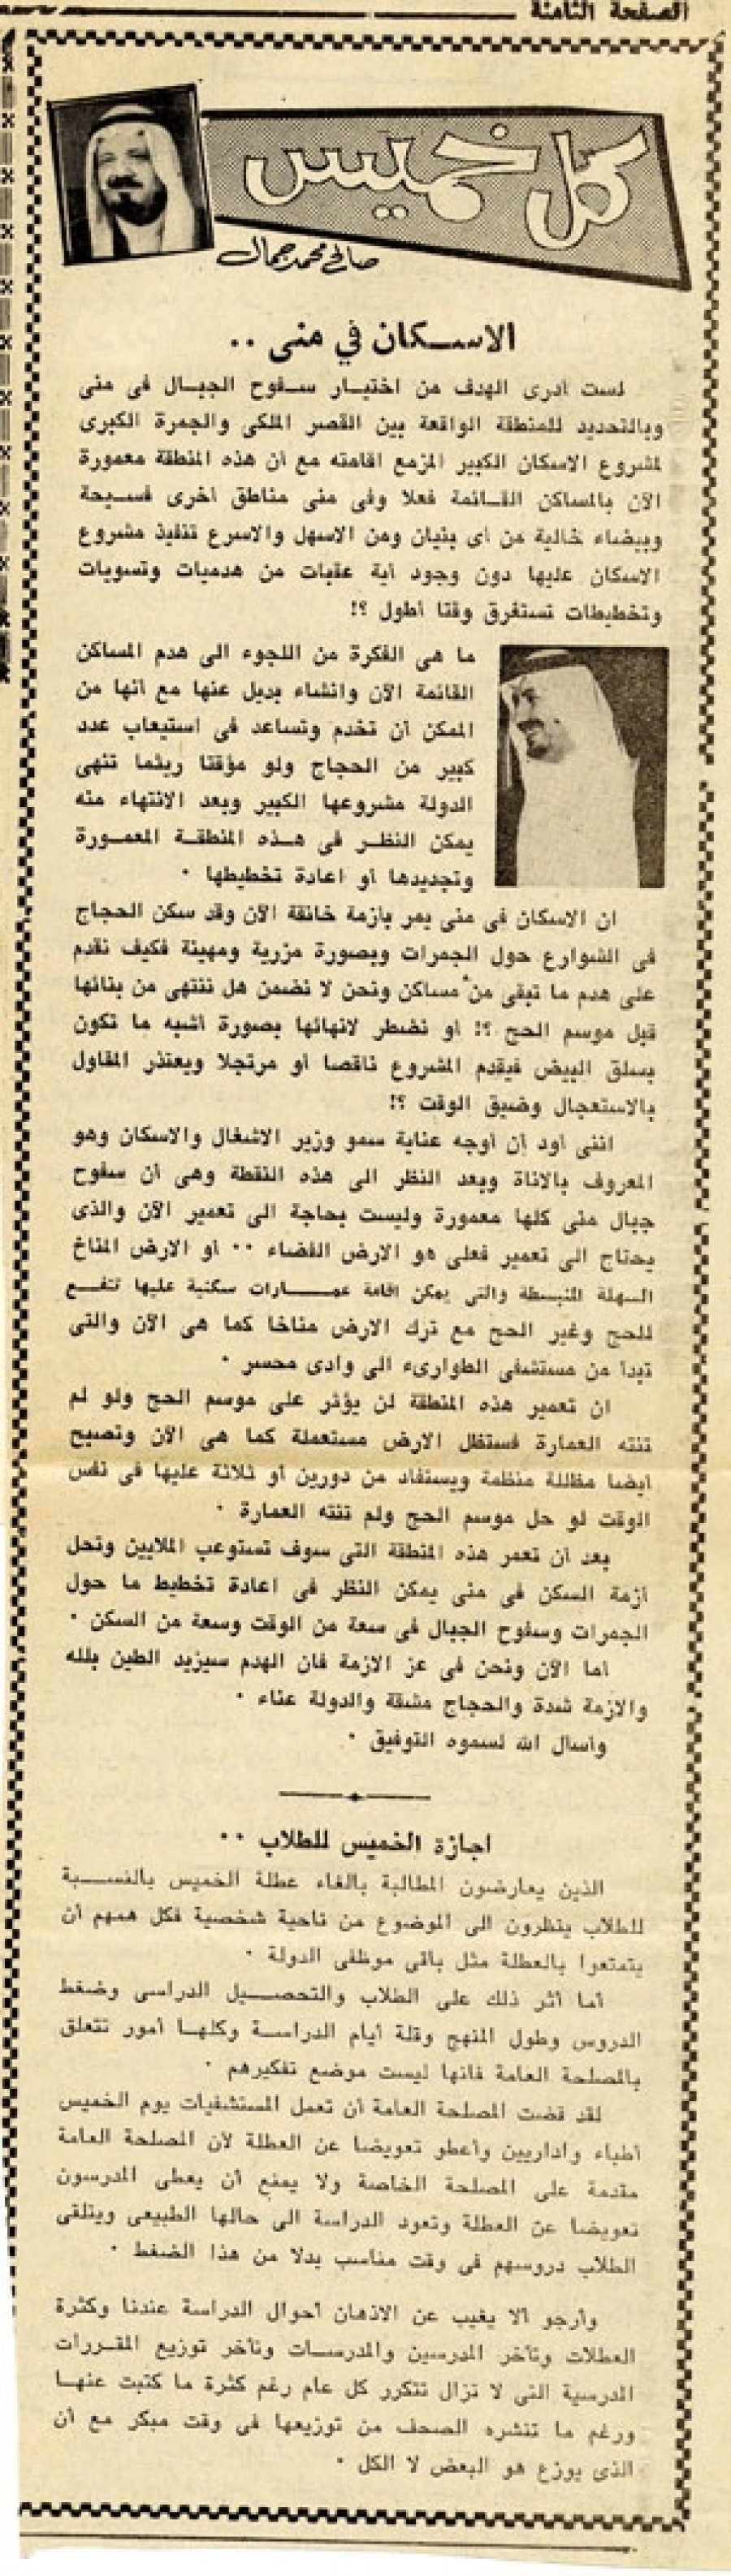 الصفحة الثامنة
كل خميس
صالح محمد جمال
الاسـكان في منى ..
لست أدرى الهدف من اختيـار سـفوح الجبـال فى منى
وبالتحديد للمنطقة الواقعة بين القصر الملكى والجمرة الكبرى
لمشروع الاسكان الكبير المزمع اقامته مع ان هذه المنطقة معمورة
الآن بالمساكن القـائمة فعلا وفى منى مناطق اخرى فسـيحة
وبيضاء خالية من اى بنيان ومن الاسهل والاسرع تنفيذ مشروع
الاسكان عليها دون وجود أية عقبات من هدميات وتسويات
وتخطيطات تستغرق وقتا أطول ؟!
ما هى الفكرة من اللجوء الى هدم المساكن
القائمة الآن وانشاء بديل عنها مع انها من
الممكن أن تخدم وتساعد فى استيعاب عدد
كبير من الحجاج ولو مؤقتا ريثما تنهى
الدولة مشروعها الكبير وبعد الانتهاء منه
يمكن النظـر فى هـذه المنطقـة المعمـورة
وتجديدها أو اعادة تخطيطها ٠
ان الاسكان فى منى يمر بازمة خانقة الآن وقد سكن الحجاج
فى الشوارع حول الجمرات وبصورة مزرية ومهينة فكيف نقدم
على هدم ما تبقى من مساكن ونحن لا نضمن هل ننتهى من بنائها
قبل موسم الحج ؟! أو نضطر لانهائها بصورة أشبه ما تكون
بسلق البيض فيقدم المشروع ناقصا أو مرتجلا ويعتذر المقاول
بالاستعجال وضيق الوقت ؟!
اننى أود أن أوجه عناية سمو وزير الاشغال والاسكان وهو
المعروف بالاناة وبعد النظر الى هذه النقطة وهى أن سفوح
جبال منى كلها معمورة وليست بحاجة الى تعمير الآن والذى
يحتاج الى تعمير فعلى هو الارض الفضاء ٠٠ او الارض المناخ
السهلة المنبسطة والتى يمكن اقامة عمـــارات سكنية عليها تنفـــع
للحج وغير الحج مع ترك الارض مناخا كما هى الآن والتى
تبدأ من مستشفى الطوارىء الى وادى محسر ٠
ان تعمير هذه المنطقة لن يؤثر على موسم الحج ولو لم
تنته العمارة فستظل الارض مستعملة كما هى الآن وتصبح
ايضا مظللة منظمة ويستفاد من دورين أو ثلاثة عليها فى نفس
الوقت لو حل موسم الحج ولم تنته العمارة ٠
بعد أن تعمر هذه المنطقة التى سوف تستوعب الملايين وتحل
ازمة السكن فى منى يمكن النظر فى اعادة تخطيط ما حول
الجمرات وسفوح الجبال فى سعة من الوقت وسعة من السكن ٠
اما الآن ونحن فى عز الازمة فان الهدم سيزيد الطين بلله
والازمة شدة والحجاج مشقة والدولة عناء ٠
وأسأل الله لسموه التوفيق ٠
اجازة الخميس للطلاب ٠٠
الذين يعارضون المطالبة بالغاء عطلة الخميس بالنســـبة
للطلاب ينظرون الى الموضوع من ناحية شخصية فكل همهم أن
يتمتعوا بالعطلة مثل باقى موظفى الدولة ٠
أما أثر ذلك على الطلاب والتحصـــيل الدراسى وضغط
الدروس وطول المنهج وقلة أيام الدراسـة وكلهـا أمور تتعلق
بالمصلحة العامة فانها ليست موضع تفكيرهم ٠
لقد قضت المصلحة العامة أن تعمل المستشفيات يوم الخميس
أطباء واداريين وأعطو تعويضا عن العطلة لأن المصلحة العامة
مقدمة على المصلحة الخاصة ولا يمنع أن يعطى المدرسون
تعويضا عن العطلة وتعود الدراسة الى حالها الطبيعى ويتلقى
الطلاب دروسهم فى وقت مناسب بدلا من هذا الضغط ٠
وأرجو ألا يغيب عن الاذهان أحوال الدراسة عندنا وكثرة
العطلات وتأخر المدرسين والمدرسـات وتأخر توزيع المقـررات
المدرسية التى لا تزال تتكرر كل عام رغم كثرة ما كتبت عنهـا
ورغم ما تنشره الصحف من توزيعها فى وقت مبكر مع أن
الذى يوزع هو البعض لا الكل ٠